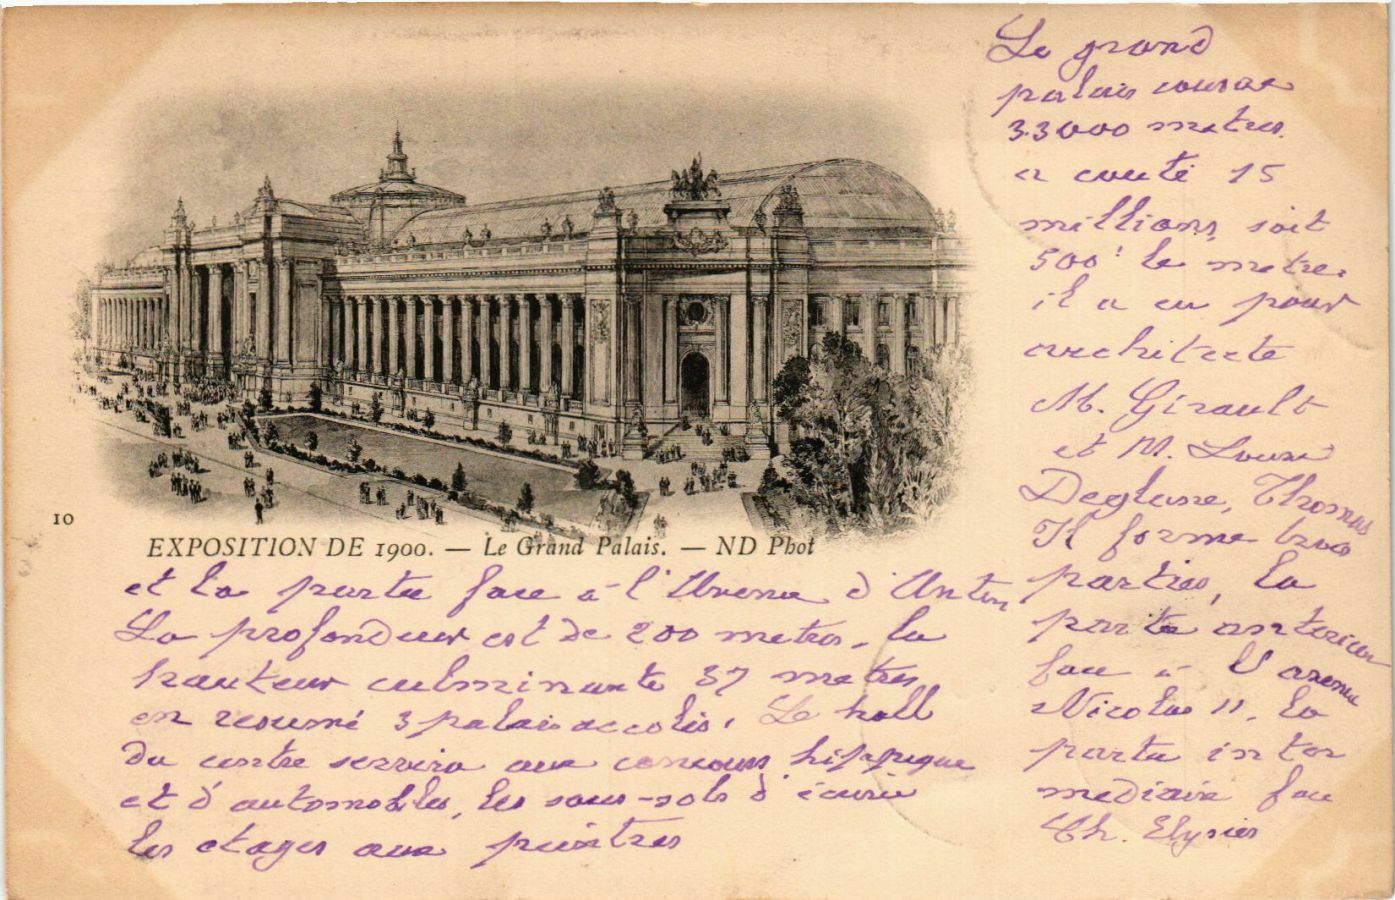 Le grand
palais couvre
33000 metres
a couté 15
millions, soit
500f le metre.
il a eu pour
architecte
M. Girault
et M. Louvet
Deglane, Thomas
Il forme trois
parties, la
partie anterieure
face à l'avenue
Nicolas II, la
partie inter
mediaire face
Ch. Elysées
10
EXPOSITION DE 1900. — Le Grand Palais. — ND Phot
et la partie face à l'Avenue d'Antin
La profondeur est de 200 metres, la
hauteur culminante 37 metres
en resumé 3 palais accolés. Le hall
du centre servira aux concours hippique
et d'automobiles, les sous-sols d'écurie
les etages aux peintres